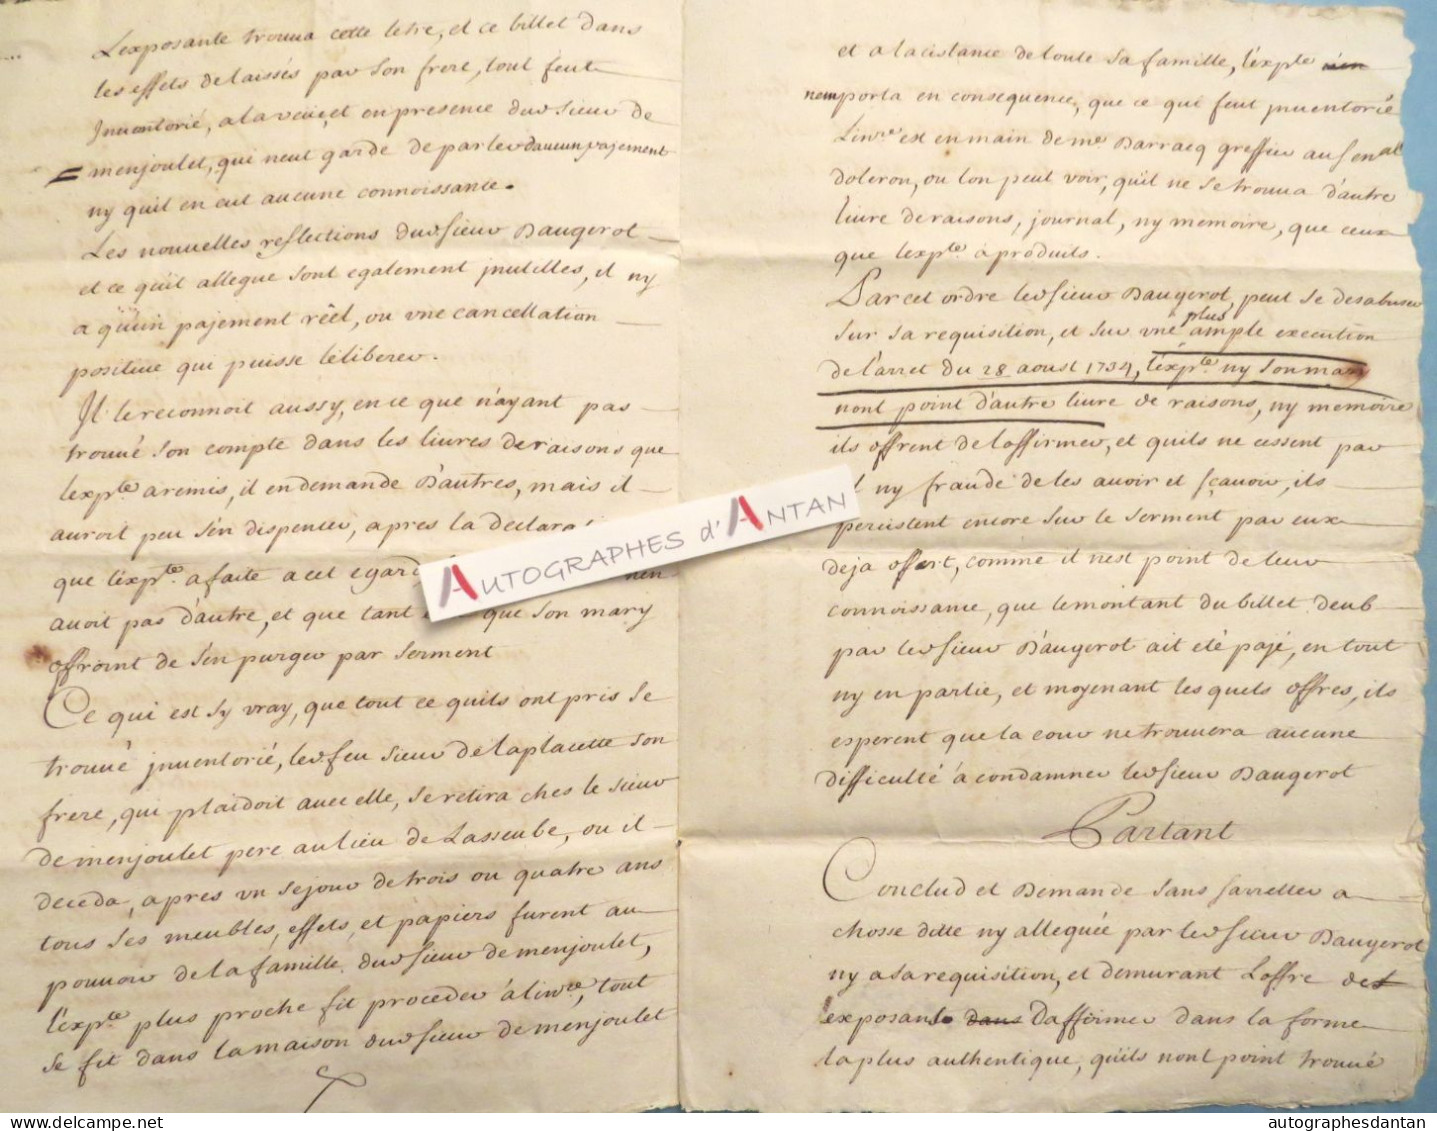 L'exposante trouva cette letre, et ce billet dans
les effets delaissés par son frere, tout feut
Inuentorié, a la veüe, et en presence dud sieur de
menjoulet, qui neut garde de parler daucun pajement
ny quil en eut aucune connoissance.
Les nouuelles reflections dud sieur Daugerot
et ce qu'il allegue sont egalement jnutilles, il ny
a qu'un pajement réel, ou vne cancellation
positiue qui puisse le liberer.
Il le reconnoit aussy, en ce que n'ayant pas
trouué son compte dans les liures de raisons que
l'expte a remis, il en demande d'autres, mais il
auroit peu s'en dispenser, apres la declara
que l'expte a faite a cet egard
auoit pas d'autre, et que tant que son mary
offroint de s'en purger par serment
Ce qui est sy vray, que tout ce quils ont pris se
trouué jnuentorié, led feu sieur de laplacette son
frere, qui plaidoit auec elle, se retira ches le sieur
de menjoulet pere au lieu de Lasseube, ou il
deceda, apres vn sejour de trois ou quatre ans
tous ses meubles, effets, et papiers furent au
pouuoir de la famille dud sieur de menjoulet,
l'expte plus proche fit proceder à linre, tout
se fit dans la maison dud sieur de menjoulet
et a la cistance de toute sa famille, l'expte
nemporta en consequence, que ce qui feut jnuentorié
Linre est en main de me Darracq greffier au senal
doleron, ou lon peut voir, quil ne se trouua d'autre
liure de raisons, journal, ny memoire, que ceux
que l'expte à produits.
Par cet ordre led sieur Daugerot, peut se desabuser
sur sa requisition, et sur vne plus ample execution
de l'arret du 28 aoust 1734, l'expte ny son mary
nont point d'autre liure de raisons, ny memoire
ils offrent de l'affirmer, et quils ne cessent par
ny fraude de les auoir et sçauoir, ils
persistent encore sur le serment par eux
deja offert, comme il n'est point de leur
connoissance, que le montant du billet deub
par led sieur D'augerot ait eté pajé, en tout
ny en partie, et moyenant lesquels offres, ils
esperent que la cour ne trouuera aucune
difficulté a condamner led sieur Daugerot
Partant
Conclud et Demande sans sarretter a
chosse ditte ny alleguée par led sieur Daugerot
ny a sa requisition, et demurant Loffre de
exposant dans Daffirmer dans la forme
la plus authentique, quils nont point trouué
AUTOGRAPHES d'ANTAN
delcampe.net
autographesdantan